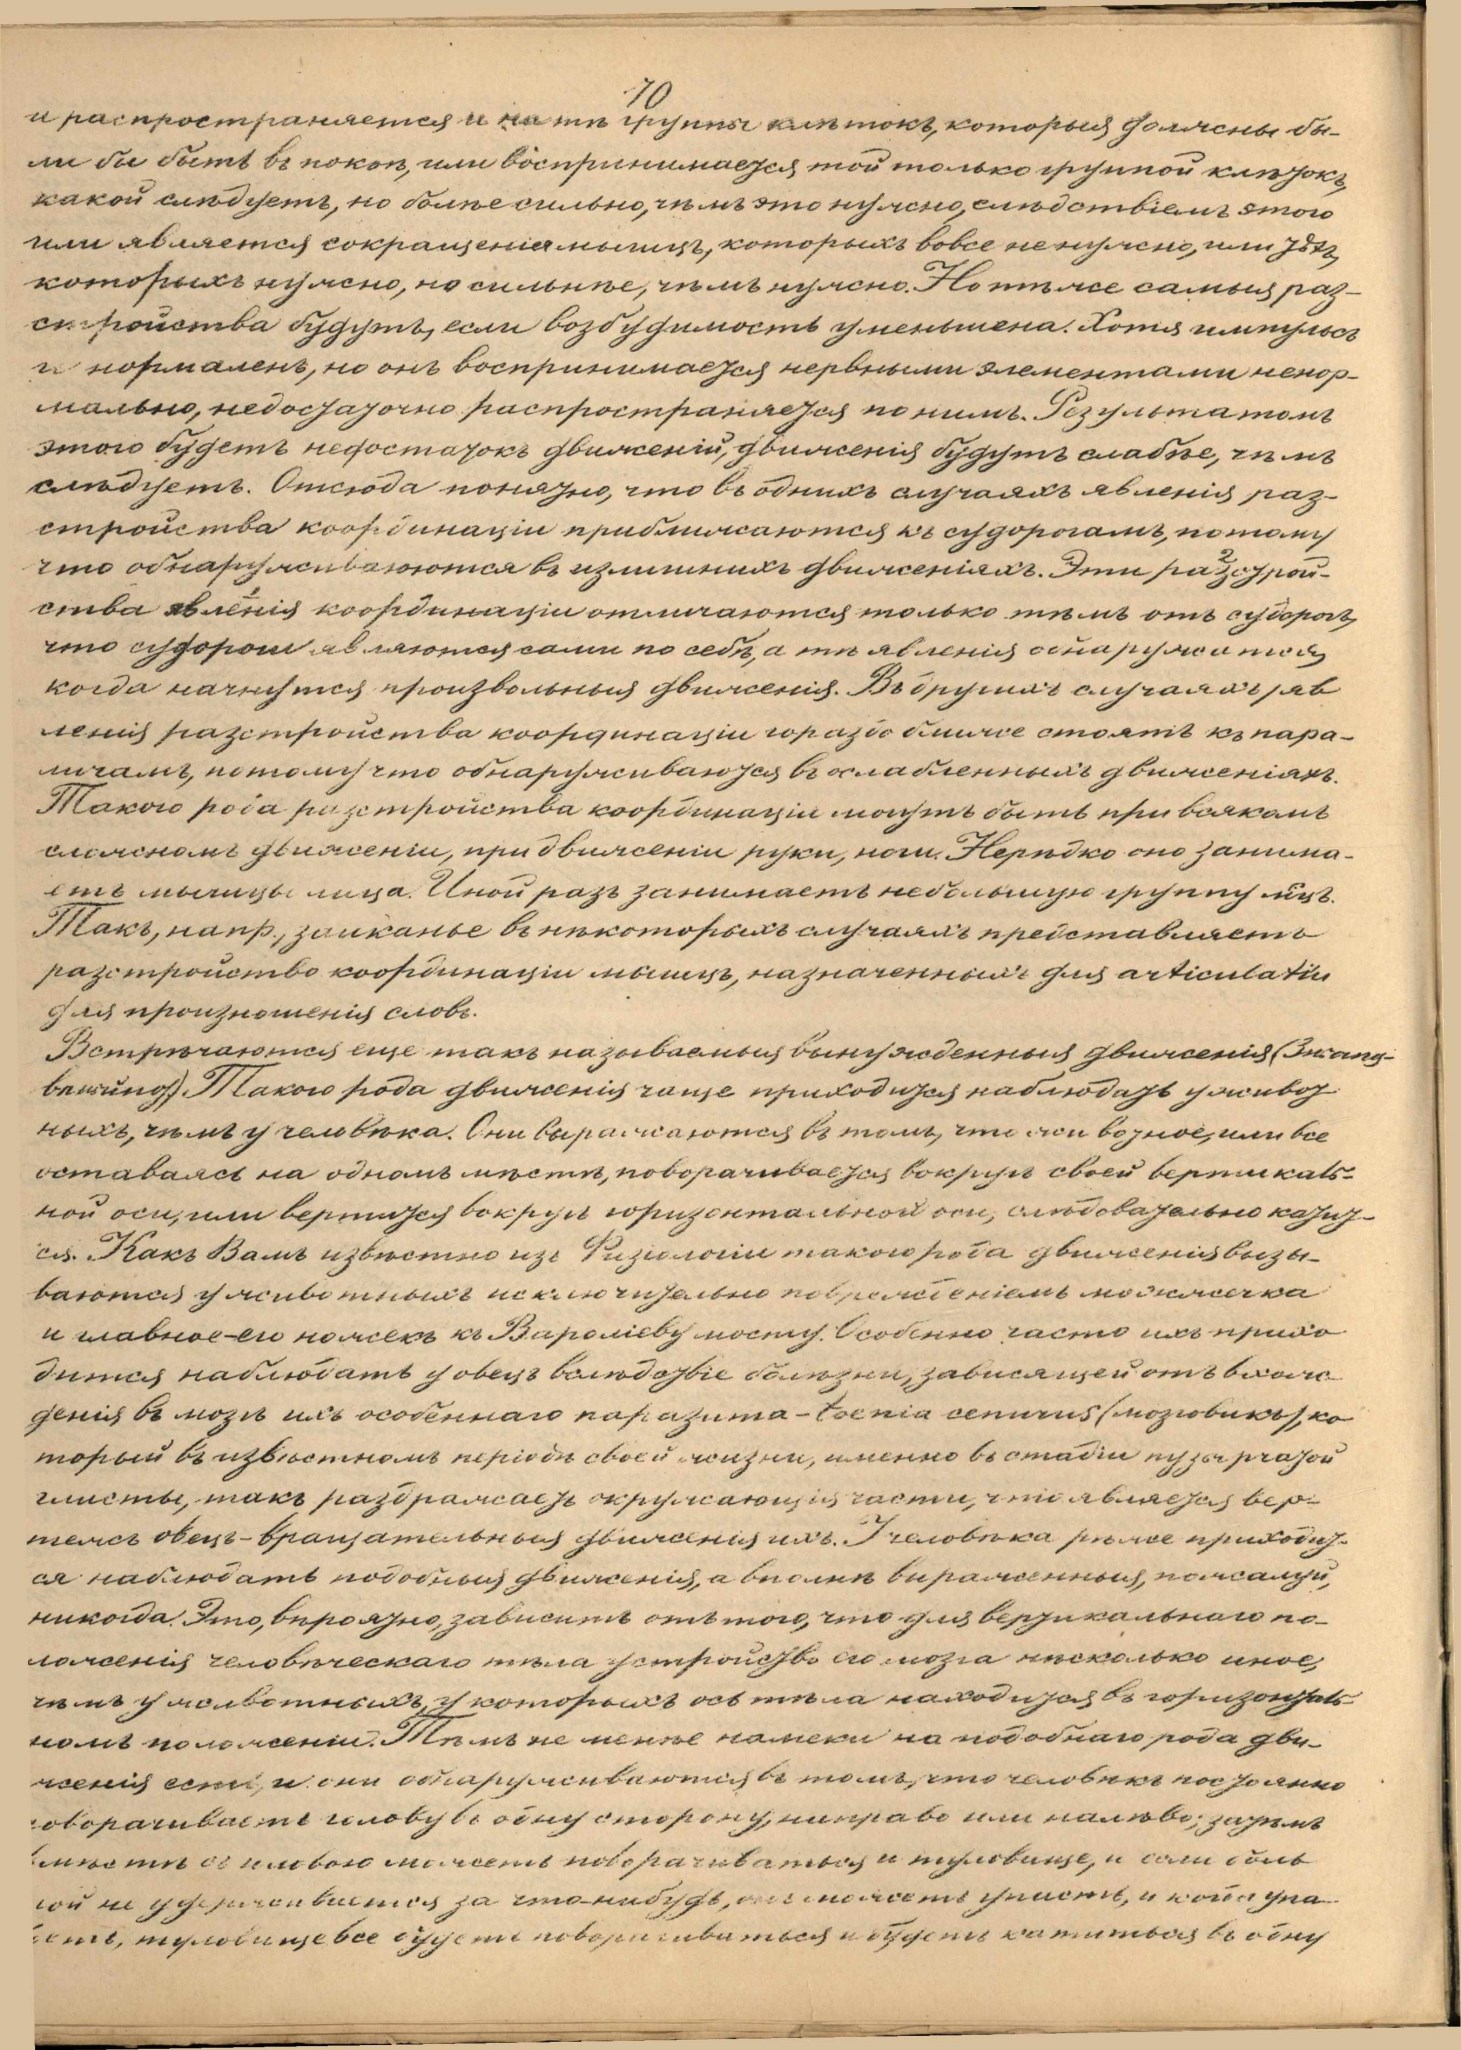 70
и распространяется и на тѣ группы клѣтокъ, которыя должны бы-
ли бы быть въ покоѣ, или воспринимается той только группой клѣтокъ,
какой слѣдуетъ, но болѣе сильно, чѣмъ это нужно, слѣдствіемъ этого
или является сокращенія мышцъ, которыхъ вовсе не нужно, или тѣхъ,
которыхъ нужно, но сильнѣе, чѣмъ нужно. Но тѣ же самыя раз-
стройства будутъ, если возбудимость уменьшена. Хотя импульсъ
и нормаленъ, но онъ воспринимается нервными элементами ненор-
мально, недостаточно распространяется по нимъ. Результатомъ
этого будетъ недостатокъ движеній, движенія будутъ слабѣе, чѣмъ
слѣдуетъ. Отсюда понятно, что въ однихъ случаяхъ явленія раз-
стройства координаціи приближаются къ судорогамъ, потому
что обнаруживаются въ излишнихъ движеніяхъ. Эти разстрой-
ства явленія координаціи отличаются только тѣмъ отъ судорогъ,
что судороги являются сами по себѣ, а тѣ явленія обнаружатся,
когда начнутся произвольныя движенія. Въ другихъ случаяхъ яв
ленія разстройства координаціи гораздо ближе стоятъ къ пара-
личамъ, потому что обнаруживаются въ ослабленныхъ движеніяхъ.
Такого рода разстройства координаціи могутъ быть при всякомъ
сложномъ движеніи, при движеніи руки, ноги. Нерѣдко оно занима-
етъ мышцы лица. Иной разъ занимаетъ небольшую группу мцъ.
Такъ, напр., заиканье въ нѣкоторыхъ случаяхъ представляетъ
разстройство координаціи мышцъ, назначенныхъ для articulatiи
для произношенія словъ.
Встрѣчаются еще такъ называемыя вынужденныя движенія (Zwang-
bewegung). Такого рода движенія чаще приходится наблюдать у живот
ныхъ, чѣмъ у человѣка. Они выражаются въ томъ, что животное, или все
оставаясь на одномъ мѣстѣ, поворачивается вокругъ своей вертикаль-
ной оси, или вертится вокругъ горизонтальной оси, слѣдовательно катит-
ся. Какъ Вамъ извѣстно изъ Физіологіи такого рода движенія вызы-
ваются у животныхъ исключительно поврежденіемъ мозжечка
и главное-его ножекъ къ Вароліеву мосту. Особенно часто ихъ прихо
дится наблюдать у овецъ вслѣдствіе болѣзни, зависящей отъ вхож
денія въ мозгъ ихъ особеннаго паразита – toenia cenurus (мозговикъ), ко
торый въ извѣстномъ періодѣ своей жизни, именно въ стадіи пузырчатой
глисты, такъ раздражаетъ окружающія части, что является вер-
тежъ овецъ – вращательныя движенія ихъ. У человѣка рѣже приходит-
ся наблюдать подобныя движенія, а вполнѣ выраженныя, пожалуй,
никогда. Это, вѣроятно, зависитъ отъ того, что для вертикальнаго по-
ложенія человѣческаго тѣла устройство его мозга нѣсколько иное,
чѣмъ у животныхъ, у которыхъ ось тѣла находится въ горизонталь-
номъ положеніи. Тѣмъ не менѣе намеки на подобнаго рода дви-
женія есть, и они обнаруживаются въ томъ, что человѣкъ постоянно
поворачиваетъ голову въ одну сторону, направо или налѣво; затѣмъ
вмѣстѣ съ головою можетъ поворачиваться и туловище, и если боль
ной не удерживается за что нибудь, онъ можетъ упасть, и когда упа
детъ, туловище все будетъ поворачиваться и будетъ катиться въ одну